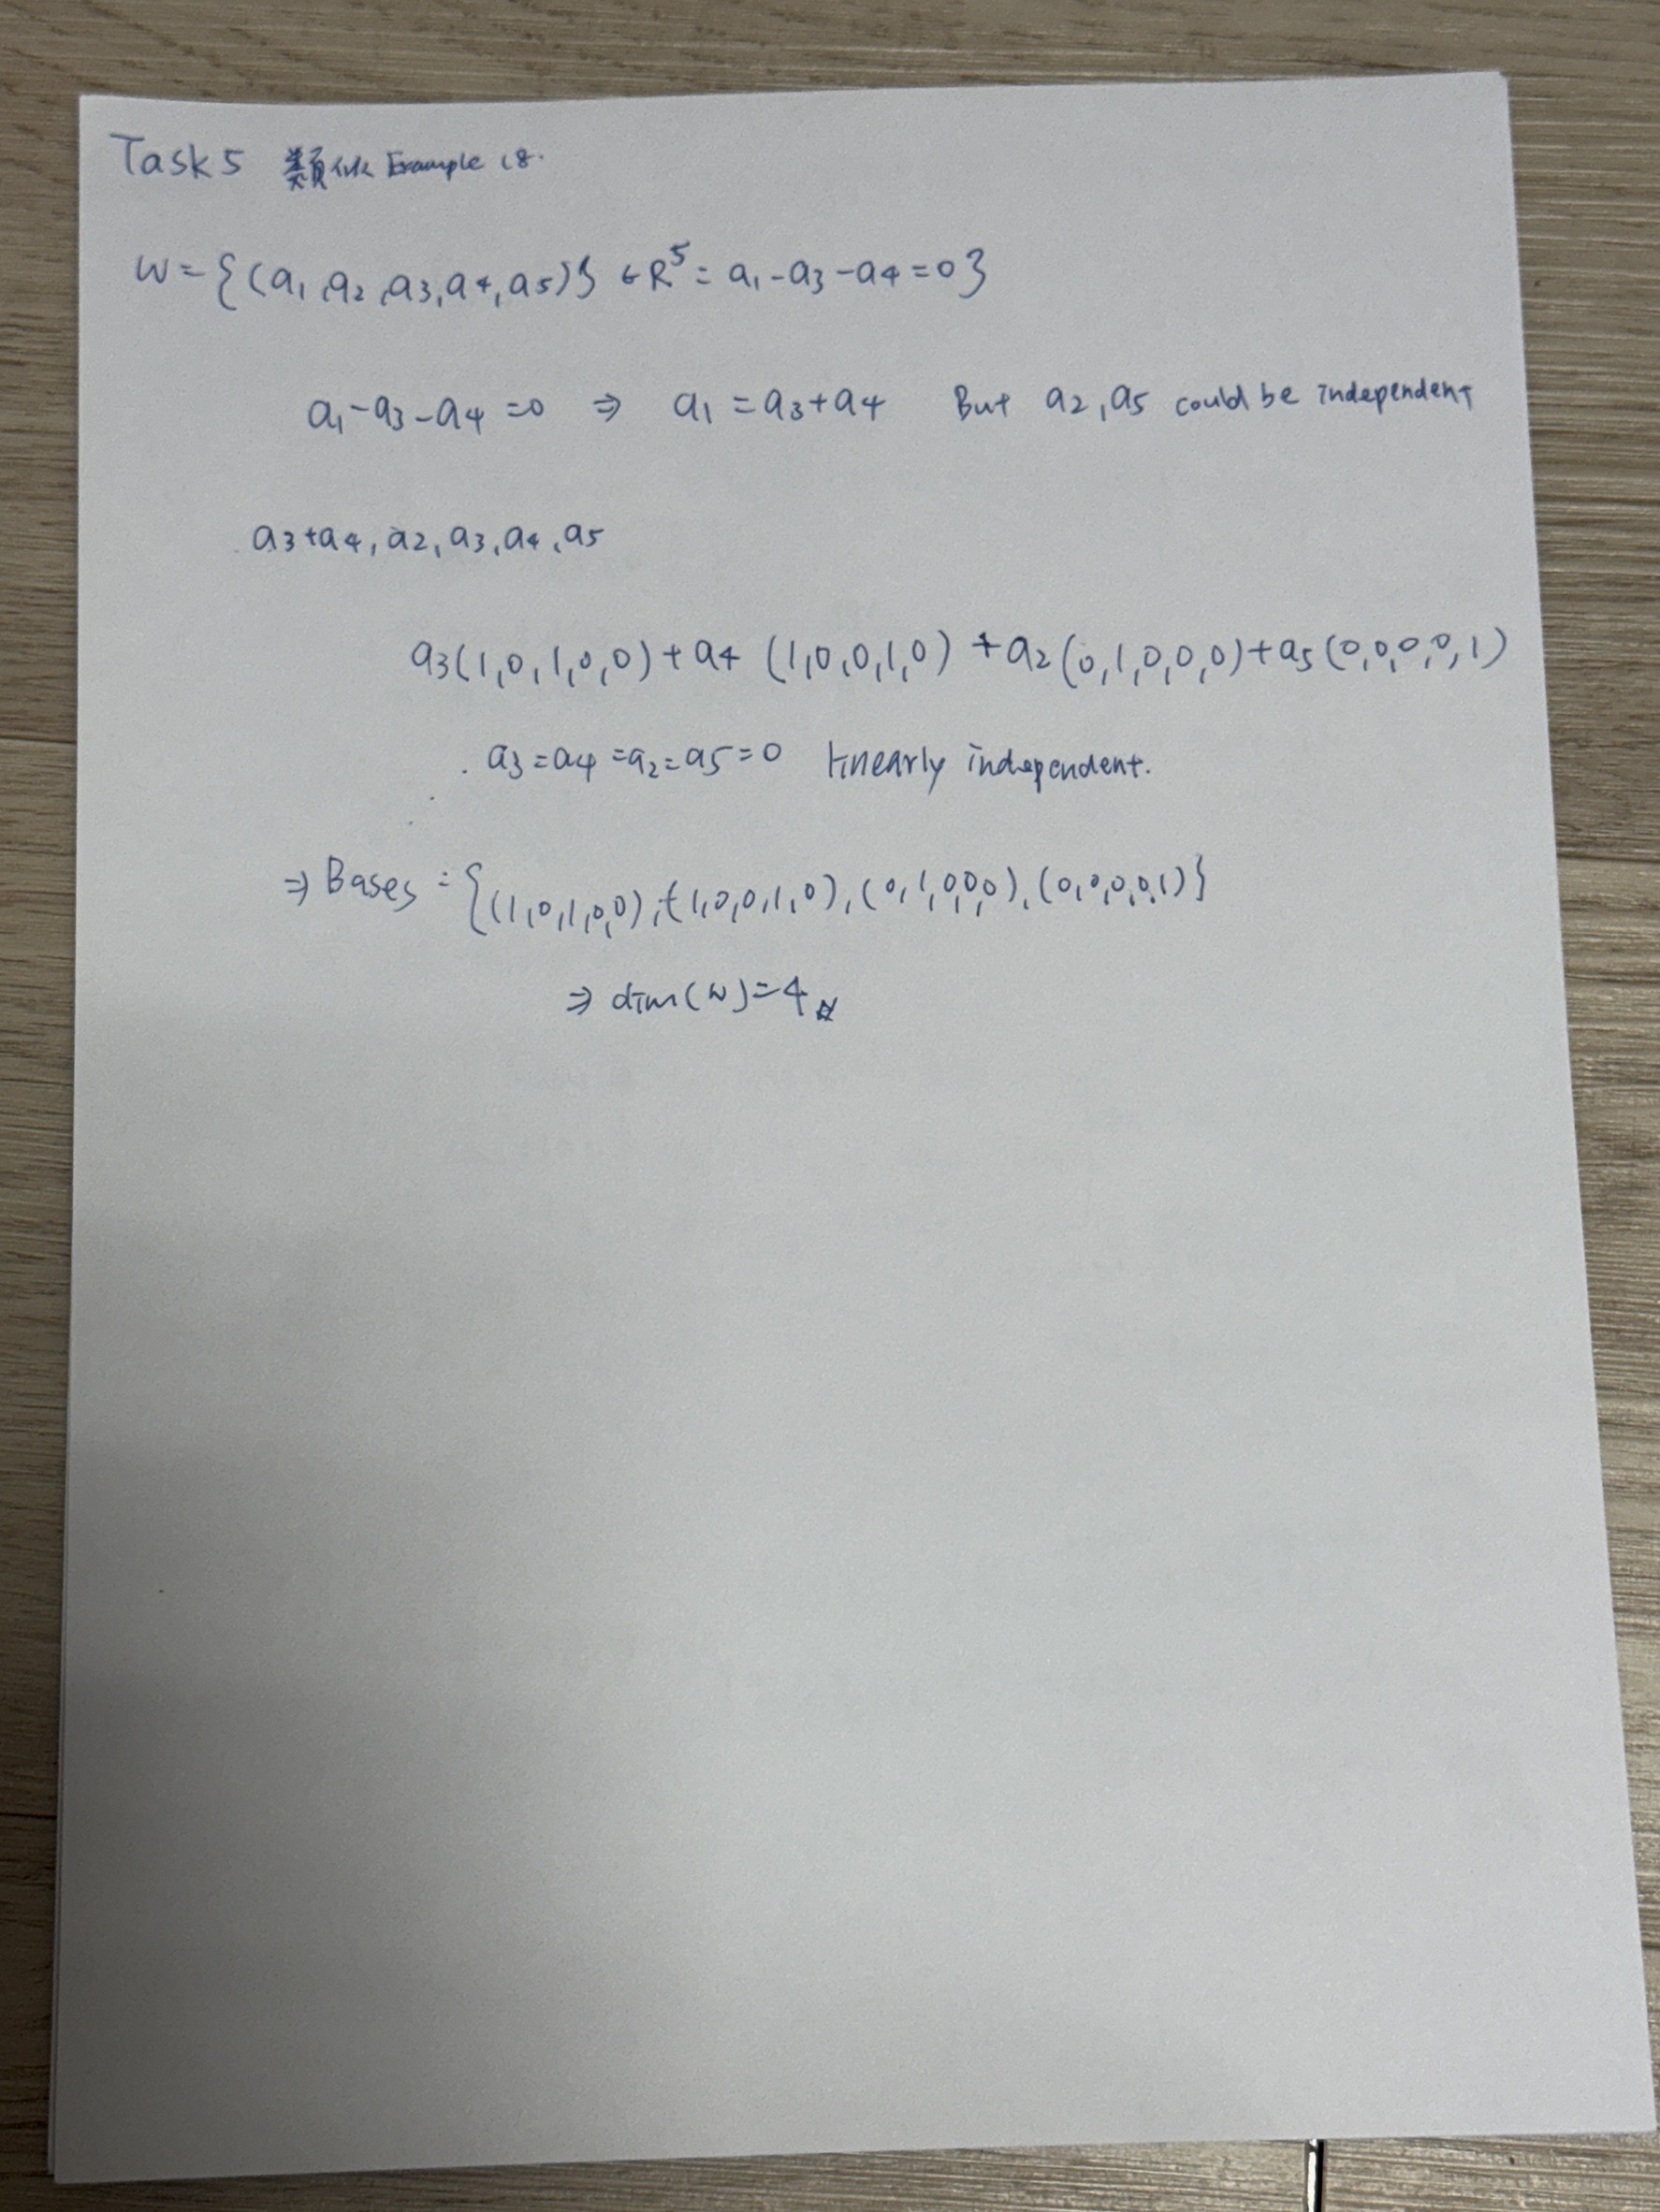 Task 5 類似 Example 18.
W = {(a1, a2, a3, a4, a5)} ∈ R^5 = a1 - a3 - a4 = 0}
a1 - a3 - a4 = 0 ⇒ a1 = a3 + a4 But a2, a5 could be independent
a3 + a4, a2, a3, a4, a5
a3(1,0,1,0,0) + a4 (1,0,0,1,0) + a2 (0,1,0,0,0) + a5 (0,0,0,0,1)
a3 = a4 = a2 = a5 = 0 linearly independent.
⇒ Bases = {(1,0,1,0,0), (1,0,0,1,0), (0,1,0,0,0), (0,0,0,0,1)}
⇒ dim(W) = 4